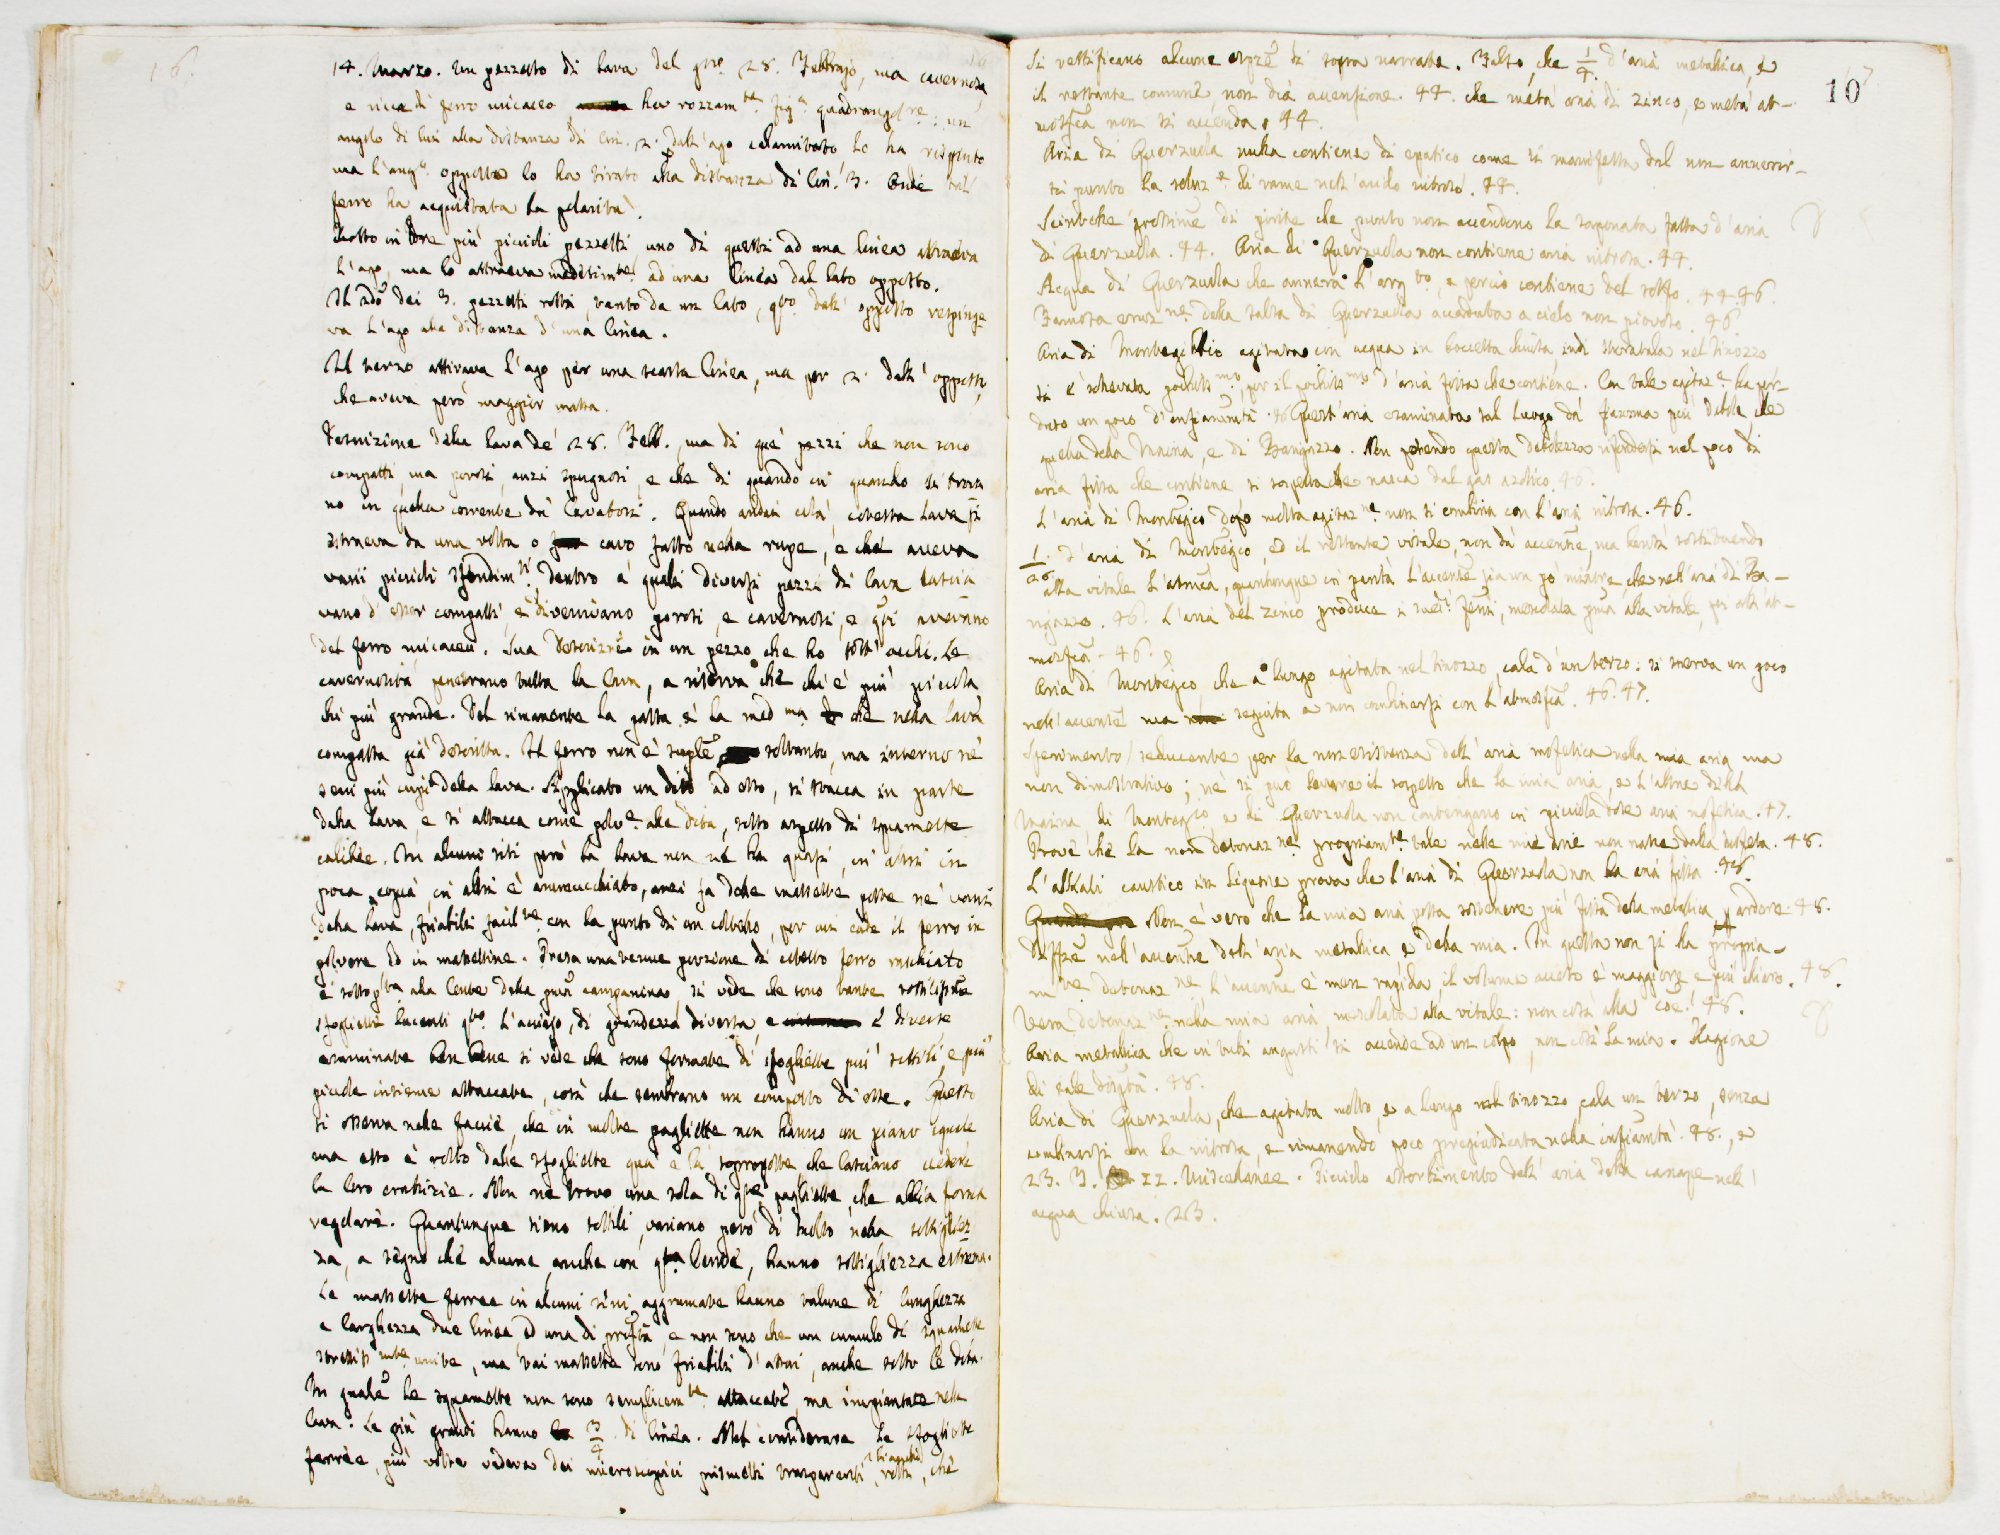 16.
14. Marzo. Un pezzetto di lava del gno. 28. Febbrajo, ma cavernosa
e ricca di ferro micaceo ha rozzam.te fig.a quadrangolre: un
angolo di lui alla distanza di lin. 2. dall'ago calamitato lo ha respinto
ma l'ang.o opposto lo ha tirato alla distanza di lin. 3. Onde tal
ferro ha acquistata la polarità.
Rotto in tre più piccioli pezzetti uno di questi ad una linea attraeva
l'ago, ma lo attraeva medesimte. ad una linea dal lato opposto.
Il 2do dei 3. pezzetti rotti, tanto da un lato, qto. dall'opposto respinge-
va l'ago alla distanza d'una linea.
Il terzo attirava l'ago per una scarsa linea, ma per 2. dall'opposto,
che aveva però maggior massa.
Descrizione della lava de' 28. Febb., ma di que' pezzi che non sono
compatti, ma porosi, anzi spugnosi, e che di quando in quando si trova
no in quella corrente di Cavatori. Quando andai colà, cotesta lava si
estraeva da una volta o cavo fatto nella rupe, e che aveva
varii piccioli sfondim.ti dentro a' quali diversi pezzi di lava lascia
vano d'esser compatti, e divenivano porosi, e cavernosi, e qui avevano
del ferro micaceo. Sua descrizne in un pezzo che ho sott'occhi. Le
cavernosità penetrano tutta la lava, a riserva che chi è più piccola
chi più grande. Del rimanente la pasta è la medma che nella lava
compatta già descritta. Il ferro non è suple soltanto, ma interno ne'
seni più cupi della lava. Applicato un dito ad esso, si stacca in parte
dalla lava, e si attacca come polve. alle dita, sotto aspetto di squamette
calibee. In alcuni siti però la lava non ne ha quasi, in altri in
poca copia, in altri è ammucchiato, anzi fa delle massette poste ne' vani
della lava, friabili facilte con la punta di un coltello, per cui cade il ferro in
polvere ed in massettine. Presa una tenue porzione di cotesto ferro raschiato
e sottopta alla lente della pma campanina, si vede che sono tante sottilissme
sfogliette lucenti qto. l'acciajo, di grandezza diversa, e diverse
esaminate ben bene si vede che sono formate di sfogliette più sottili, e più
picciole insieme attaccate, cosà che sembrano un composto di esse. Questo
si osserva nelle faccie, che in molte pagliette non hanno un piano eguale
ma esso è rotto dalle sfogliette qua e là soprapposte, che lasciano vedere
la loro crassizie. Non ne trovo una sola di qste pagliette, che abbia forma
regolare. Quantunque sieno sottili, variano però di molto nella sottigliez
za, a segno che alcune, anche con qta lente, hanno sottigliezza estrema.
Le massette ferree in alcuni sini aggrumate hanno talune di lunghezza
e larghezza due linee ed una di profta e non sono che un cumulo di squamette
strettissmte unite, ma tai massette sono friabili d'assai, anche sotto le dita.
In quale le squamette non sono semplicemte attaccate, ma impiantate nella
lava. Le più grandi hanno 3/4 di linea. Nel considerare le sfogliette
ferree, più volte vedeva dei microscopici prismetti trasparenti, rotti, che
107
Si rettificano alcune esprze di sopra narrate. Falso, che 1/4. d'aria metallica, e
il restante comune, non dia accensione. 44. che metà aria di zinco, e metà at-
mosfca non si accenda. 44.
Aria di Querzuola nulla contiene di epatico come si manifesta dal non annerir-
si punto la soluz.e di rame nell'acido nitroso. 44.
Scintille prossime di pirite che punto non accendono la saponata fatta d'aria
di Querzuola. 44. Aria di Querzuola non contiene aria nitrosa. 44.
Acqua di Querzuola che annera l'argto, e perciò contiene del solfo. 44-46.
Famosa eruzne. della salsa di Querzuola accaduta a cielo non piovoso. 46.
Aria di Montegibbio agitata con acqua in boccetta chiusa, indi sturatala nel tinozzo
si è scemata pochissmo, per il pochissmo d'aria fissa che contiene. Con tale agitaze. ha per-
duto un poco d'infiammti. 46. Quest'aria esaminata sul luogo dà fiamma più debole che
quella della Maina, e di Barigazzo. Non potendo questa debolezza rifondersi nel poco di
aria fissa che contiene, si sospetta che nasca dal gas azotico. 46.
L'aria di Montegio dopo molta agitazne. non si combina con l'aria nitrosa. 46.
1/26. d'aria di Montegio, ed il restante vitale, non dà accenne, ma bensì sostituendo
alla vitale l'atmca, quantunque in parità l'accenne sia un po' minore, che nell'aria di Ba-
rigazzo. 46. L'aria del zinco produce i medi fenni, mescolata pma alla vitale, poi all'at-
mosfca. 46.
Aria di Montegio che a lungo agitata nel tinozzo, cala d'un terzo: si snerva un poco
nell'accenne ma seguita a non combinarsi con l'atmosfca. 46. 47.
Sperimento seducente per la non esistenza dell'aria mofetica nella mia aria, ma
non dimostrativo; nè si può levare il sospetto che la mia aria, e l'altre della
Maina, di Montegio e di Querzuola non contengano in picciola dose aria mofetica. 47.
Prove che la non detonazne. propriamte. tale nelle mie arie non nasce dalla mofeta. 48.
L'alkali caustico in liquore prova che l'aria di Querzuola non ha aria fissa. 48.
Non è vero che la mia aria possa sostenere più fissa della metallica p ardere. 48.
Diffze nell'accenne dell'aria metallica e della mia. In questa non si ha propria-
mte detonazne l'accenne è men rapida, il volume acceso è maggiore e più chiaro. 48.
Vera detonazne. nella mia aria, mescolata alla vitale: non così alla coe. 48.
Aria metallica che in tubi angusti si accende ad un colpo, non così la mia. Ragione
di tale disptà. 48.
Aria di Querzuola, che agitata molto, e a lungo nel tinozzo, cala un terzo, senza
combinarsi con la nitrosa, e rimanendo poco pregiudicata nella infiamtà. 48., e
23. 3. II. Miscellanee. Picciolo assorbimento dell'aria della canape nell'
acqua chiusa. 23.